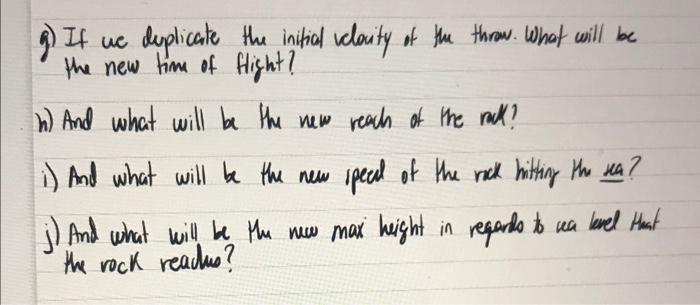 g) If we duplicate the initial velocity of the throw. What will be
the new time of flight?
h) And what will be the new reach of the rock?
i) And what will be the new speed of the rock hitting the sea?
j) And what will be the new max height in regards to sea level that
the rock reaches?